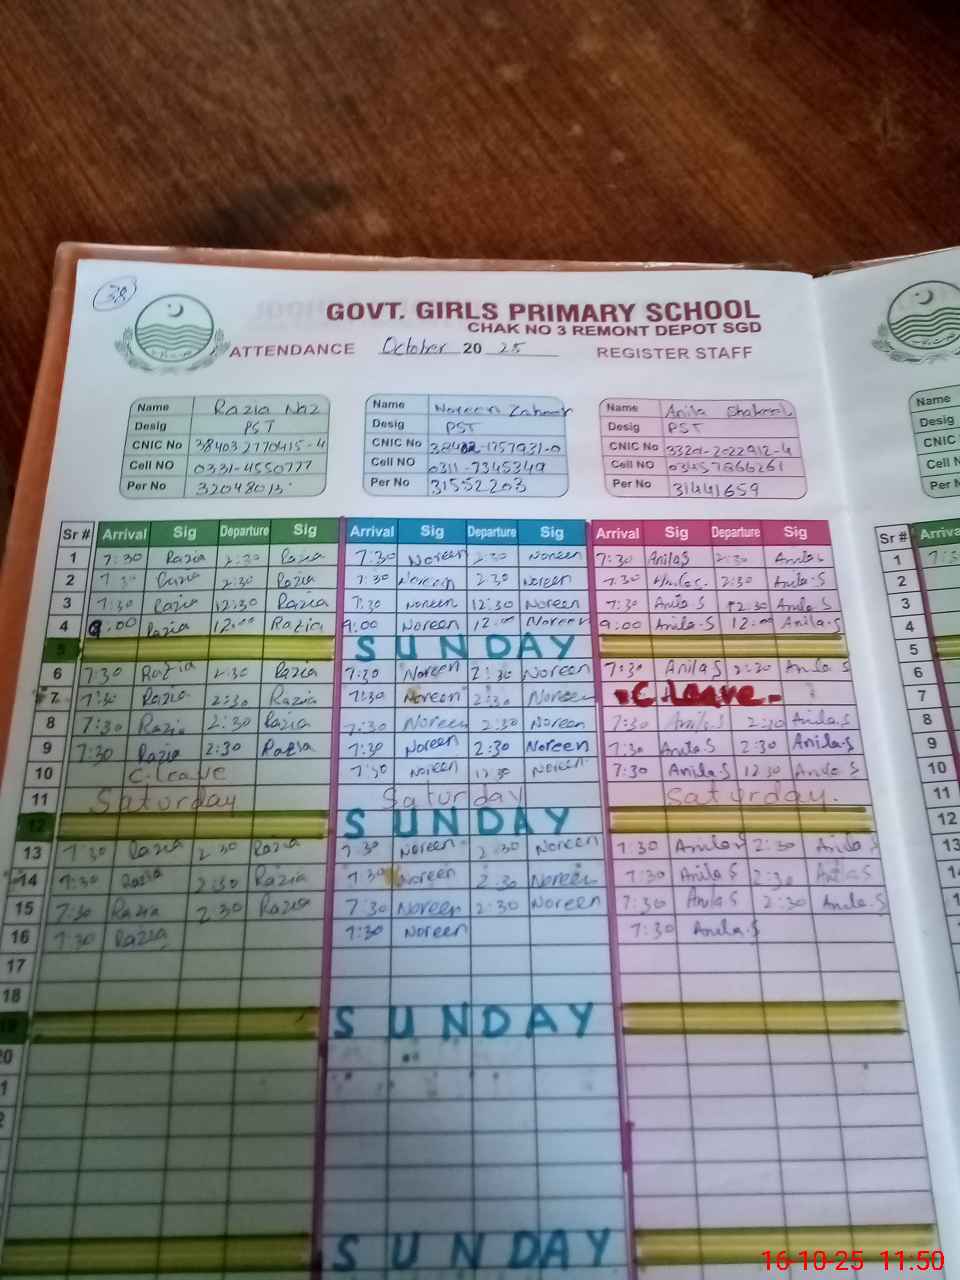 38
GOVT. GIRLS PRIMARY SCHOOL
CHAK NO 3 REMONT DEPOT SGD
ATTENDANCE October 20 25 REGISTER STAFF
Name Razia Naz Name Noreen Zaheer Name Anila Shakeel
Desig PST Desig PST Desig PST Desig
CNIC No 384032770415-4 CNIC No CNIC No 3320-2022912-4 CNIC
Cell NO 0331-4550777 Cell NO 0311-7345349 Cell NO Cell N
Per No Per No 31552203 Per No 31441659 Per No
Sr # Arrival Sig Departure Sig Arrival Sig Departure Sig Arrival Sig Departure Sig Sr # Arriva
1 7:30 Razia 2:30 Razia 7:30 Noreen 2:30 Noreen 7:30 Anila S 2:30 Anila S 1
2 7:30 Razia 2:30 Razia 7:30 Noreen 2:30 Noreen 7:30 Anila S 2:30 Anila S 2
3 7:30 Razia 12:30 Razia 7:30 Noreen 12:30 Noreen 7:30 Anila S 12:30 Anila S 3
4 9:00 Razia 12:00 Razia 9:00 Noreen 12:00 Noreen 9:00 Anila-S 12:00 Anila-S 4
5 SUNDAY 5
6 7:30 Razia 2:30 Razia 7:30 Noreen 2:30 Noreen 7:30 Anila S 2:30 Anila S 6
7 7:30 Razia 2:30 Razia 7:30 Noreen 2:30 Noreen C.leave- 7
8 7:30 Razia 2:30 Razia 7:30 Noreen 2:30 Noreen 7:30 Anila S 2:30 Anila.S 8
9 7:30 Razia 2:30 Razia 7:30 Noreen 2:30 Noreen 7:30 Anila S 2:30 Anila.S 9
10 C.leave 7:30 Noreen 12:30 Noreen 7:30 Anila.S 12:30 Anila S 10
11 Saturday Saturday Saturday. 11
12 SUNDAY 12
13 7:30 Razia 2:30 Razia 7:30 Noreen 2:30 Noreen 7:30 Anila S 2:30 Anila S 13
14 7:30 Razia 2:30 Razia 7:30 Noreen 2:30 Noreen 7:30 Anila S 2:30 Anila S
15 7:30 Razia 2:30 Razia 7:30 Noreen 2:30 Noreen 7:30 Anila S 2:30 Anila S
16 7:30 Razia 7:30 Noreen 7:30 Anila.S
17
18
19 SUNDAY
20
SUNDAY
16-10-25 11:50